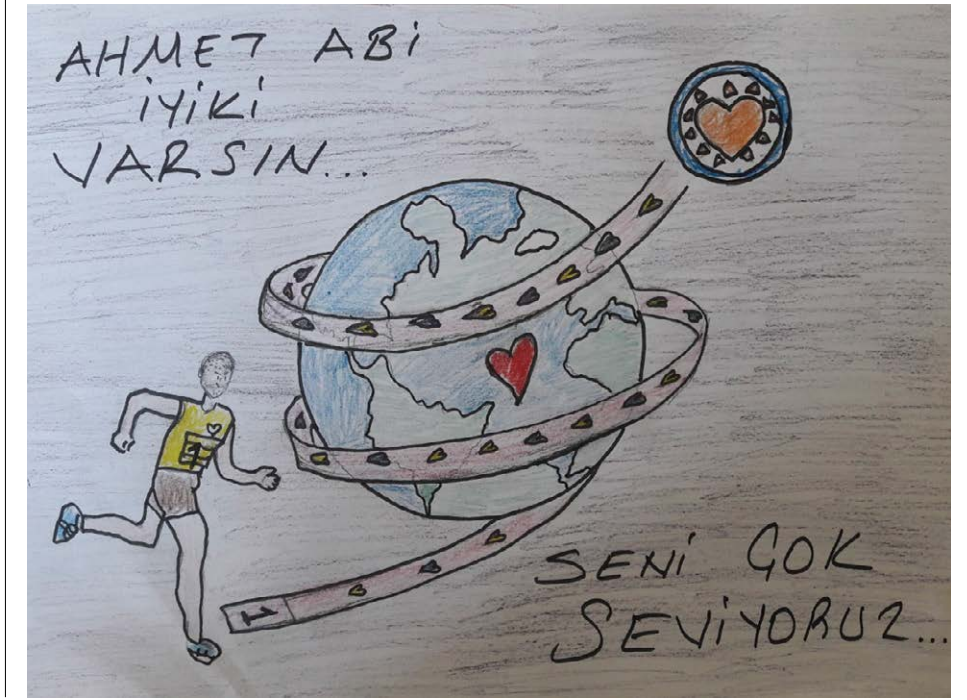 AHMET ABİ
İYİKİ
VARSIN...
1
1
SENİ ÇOK
SEVİYORUZ...